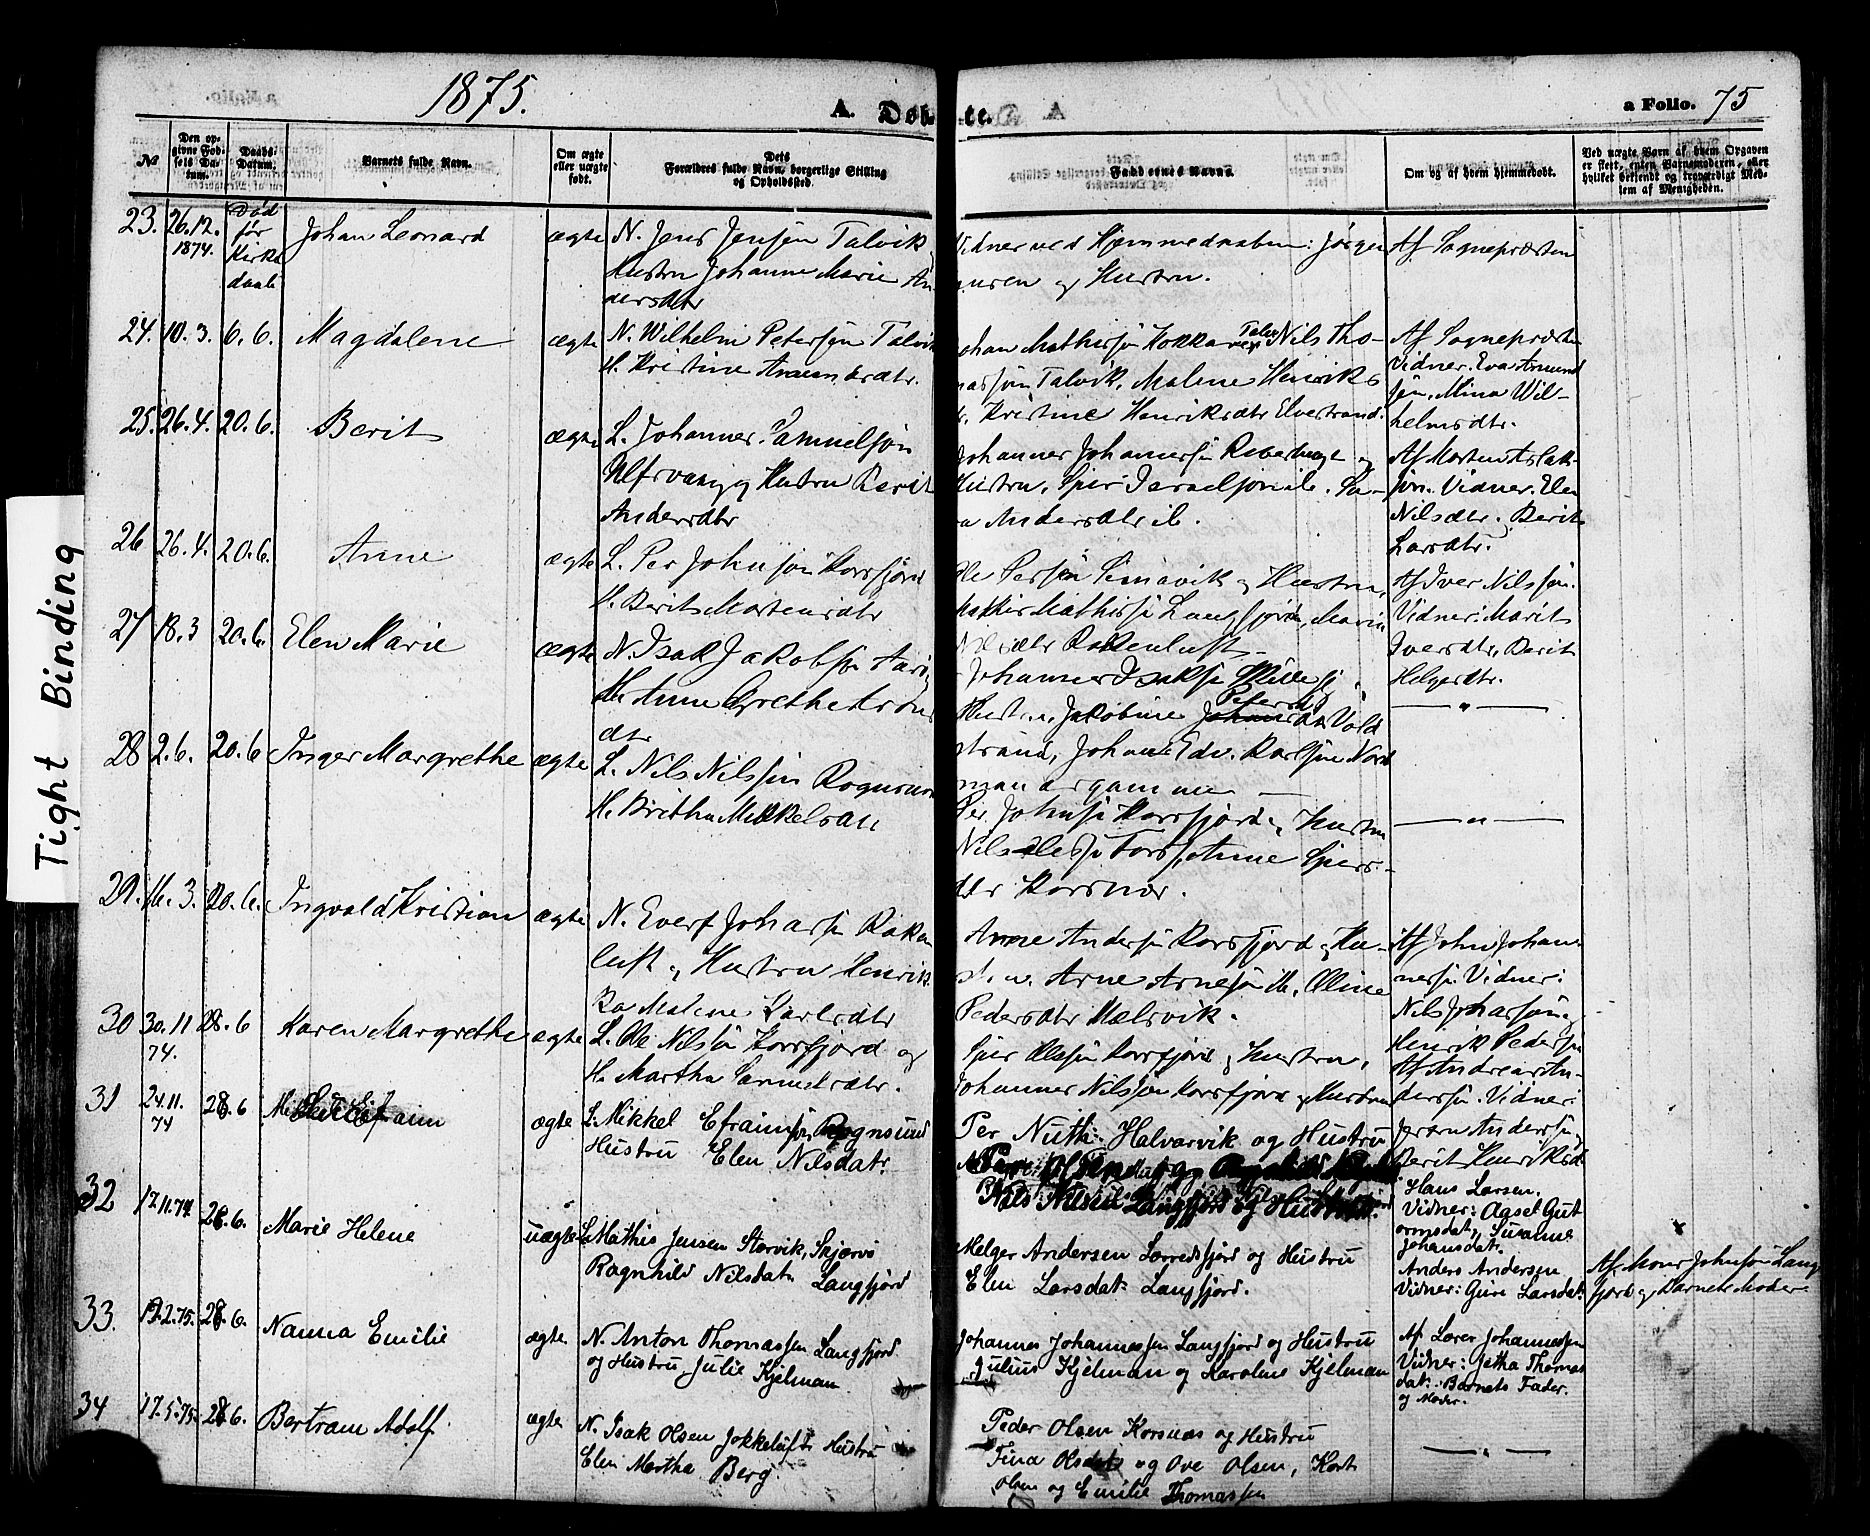 1875.
A. Døb
te.
a Folio. 75
No
Den op-
givne Fød-
sels Da-
tum.
Daabs-
Datum.
Barnets fulde Navn.
Om ægte
eller uægte
født.
Dets
Forældres fulde Navn, borgerlige Stilling
og Opholdssted.
Faddernes Navne.
Om og af hvem hjemmedøbt.
Ved uægte Børn af hvem Opgaven
er skeet, enten Barnemoderen, eller
hvilket bekjendt og troværdigt Med-
lem af Menigheden.
Tight Binding
23. 26.12.
1874.
Død
før
Kirke
daab
Johan Leonard
ægte
N. Jens Jensen Talvik
Hustru Johanne Marie An-
dersdtr
Vidner ved Hjemmedaaben: Jørgen
og Hustru.
Af Sognepræsten
24. 10.3. 6.6. Magdalene
ægte
N. Wilhelm Petersen Talvik
H. Kristine
Johan Mathisen Talvig Nils Tho-
massen Talvik, Malene Henriks
Kristine Henriksdtr Elvestrand.
Af Sognepræsten
Vidner. Eva Amund
sen, Mina Wil-
helmsdtr.
25. 26.4. 20.6. Berit
ægte
L. Johannes Samuelsøn
og Hustru Berit
Andersdtr
Johannes Johannesen og
Hustru, Sper Israelsøn ib. Sa-
ra Andersdtr ib.
Af Morten Aslak-
søn. Vidner. Elen
Nilsdtr. Berit
Larsdtr.
26 26.4. 20.6. Anne
ægte
L. Per Johnsøn Korsfjord
H. Berit Mortensdtr
Ole Persøn Simavik og Hustru,
Mathis Mathisen Langfjord, Marie
Nilsdtr Rakenluft
Af Iver Nilssøn.
Vidner: Marit
Iversdtr, Berit
Helgesdtr.
27 18.3 20.6. Elen Marie
ægte
N. Isak Jakobsen
H. Anne Grethe Arons
dtr
Johannes Isaksen
Hustru, Jakobine Peters
strand, Johan Edv. Karlsen Nord
mandsgamme
— " —
28 2.6. 20.6 Inger Margrethe
ægte
L. Nils Nilssen Rognsund
H. Birtha Mikkelsdtr
Per Johnsen Korsfjord og Hustru
Nils Olesen Anne Spers-
dtr Korsnes.
— " —
29. 16.3. 20.6. Ingvald Kristian
ægte
N. Evert Johansen Raken
luft og Hustru Henrik
ka Malene Karlsdtr
Arne Andersen Korsfjord og Hu-
stru. Arne Arnesøn ib. Oline
Pedersdtr Mælsvik.
Af John Johan-
nesen. Vidner:
Nils Johansøn og
Henrik Pedersen
30 30.11
74. 28.6 Karen Margrethe
ægte
L. Ole Nilsen Korsfjord og
H. Martha Samuelsdtr.
Sper Olesen Korsfjord og Hustru,
Johannes Nilsen Korsfjord og Hustru
Af Andreas An-
dersen. Vidner:
Jørgen Andersen og
Berit Henriksd
31 24.11.
74 28.6
ægte
L. Mikkel Efraimsen Rognsund
Hustru Elen Nilsdatr.
Per Nuth: Halvarvik og Hustru
Nils Nilsen Langfjord og Hustru.
Hans Larsen.
Vidner: Aasel Gut
ormsdatr, Susanne
Johansdatr.
32 17.11.74. 28.6. Marie Helene
uægte
L. Mathis Jensen Storvik, Skjærvø
Ragnhild Nilsdatr Langfjord
Helger Andersen Lerredsfjord og Hustru
Elen Larsdatr Langfjord.
Anders Andersen
Vidner: Guri Larsdatr.
Af Mons Johnsen Lang
fjord og Barnets Moder
33. 12.2.75. 28.6. Nanna Emilie
ægte
N. Anton Thomassen Langfjord
og Hustru Julie Kjelman
Johannes Johannessen Langfjord og Hustru
Julius Kjelman og Karoline Kjelman
Af Lærer Johannessen
Vidner: Jetha Thomas
datr. Barnets Fader.
og Moder.
34 17.5.75. 28.6. Bertram Adolf
ægte
N. Isak Olsen Jokkeluft Hustru
Elen Martha Berg.
Peder Olsen Korsnæs og Hustru
Fina Olsdatr og Ove Olsen, Kort
Olsen og Emilie Thomassen
— " —